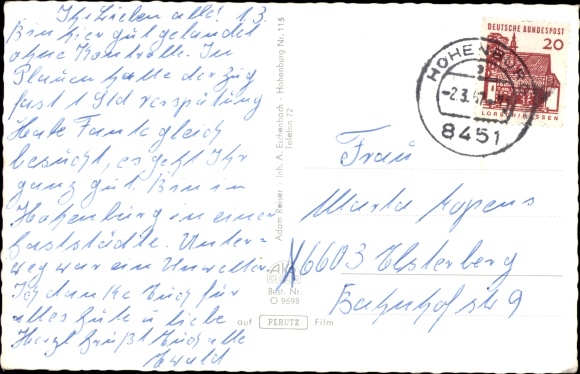 Ihr Lieben alle! 1.3.
Bin hier gut gelandet
ohne Kontrolle. In
Plauen hatte der Zug
fast 1 Std verspätung
Habe Tante gleich
besucht, es geht Ihr
ganz gut. Bin in
Hohenburg in einer
Gaststädte. Unter-
weg war ein Unwetter
Ich danke Euch für
alles Gute u liebe
Herzl grüßt Euch alle
Ewald
Adam Reiser · Inh. A. Eschenbach · Hohenburg Nr. 115
Telefon 72
Best. Nr.
O 9698
auf PERUTZ Film
DEUTSCHE BUNDESPOST
20
LORSCH/HESSEN
HOHENBURG
-2.3.67
8451
Frau
Marta
X6603 Elsterberg
Bahnhofstr 9